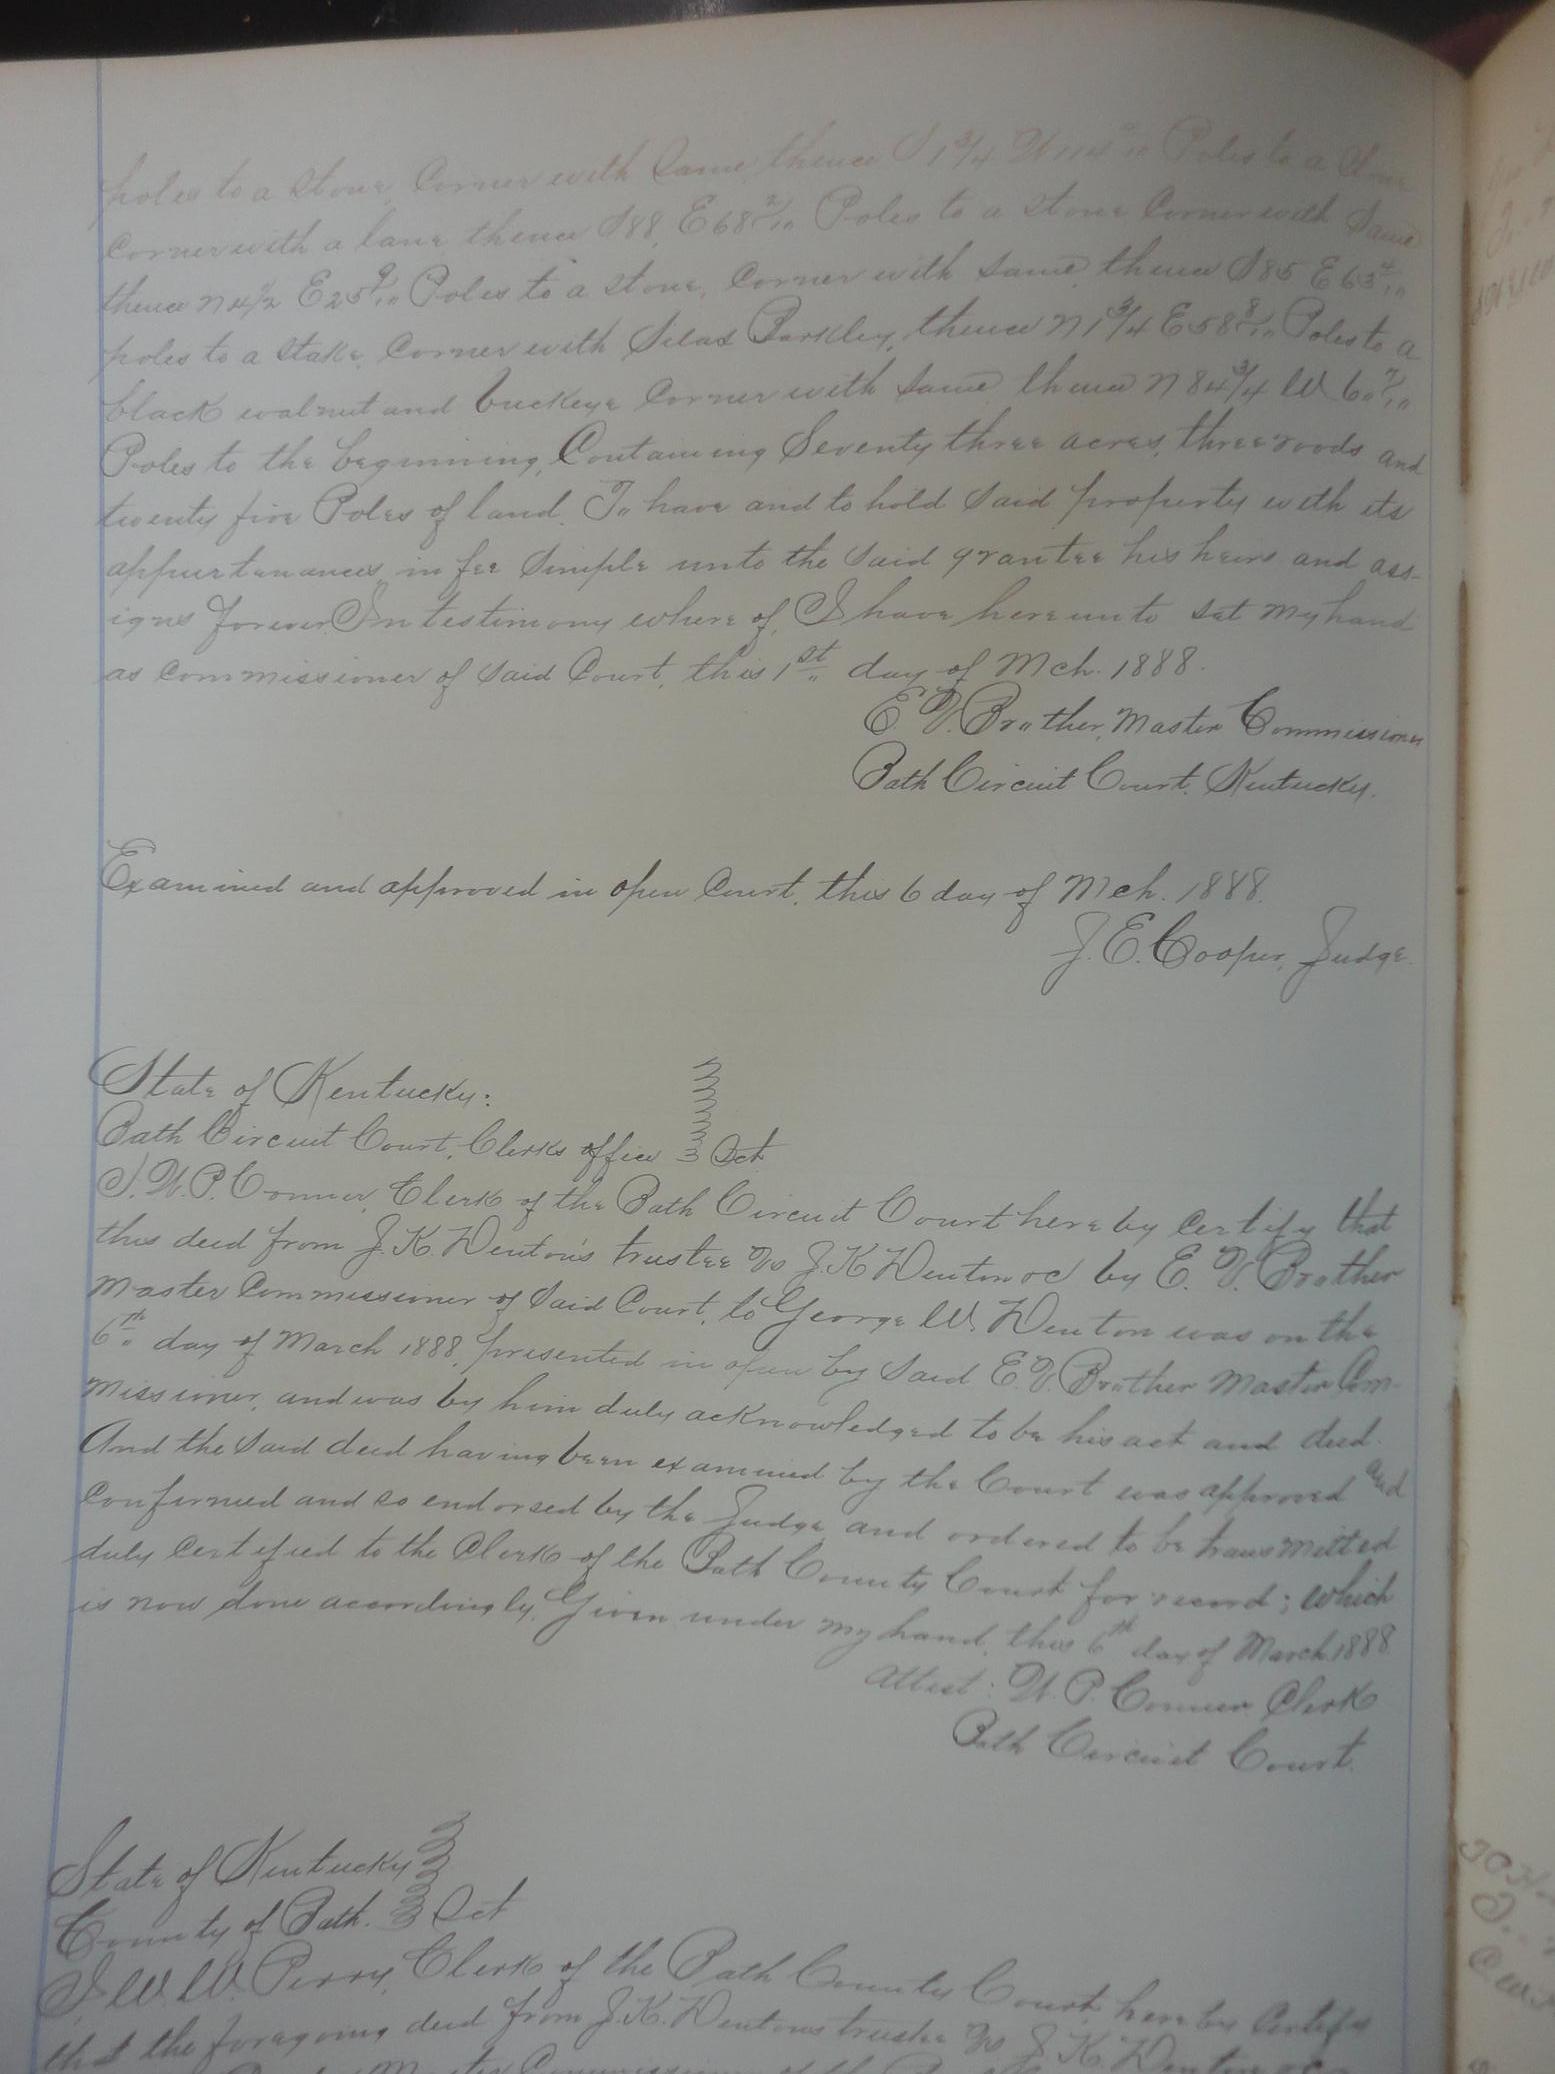 poles to a stone, Corner with Same, thence S 1 3/4 W Poles to a Stone
Corner with a lane thence S88, E 68 2/10 Poles to a stone Corner with Same
thence N 4 1/2 E 25 9/10 Poles to a stone, Corner with same, thence S85 E 63 4/10
poles to a stake, Corner with Silas Barkley, thence N 1 3/4 E 58 8/10 Poles to a
black walnut and buckeye Corner with same, thence N 84 3/4 W 60 7/10
Poles to the beginning, Containing Seventy three acres, three roods and
twenty five Poles of land. To have and to hold said property with its
appurtenances in fee simple unto the said grantee his heirs and ass-
igns forever. In testimony where of, I have hereunto set my hand
as commissioner of said Court, this 1st day of Mch. 1888.
E. V. Brother, Master Commissioner
Bath Circuit Court, Kentucky.
Examined and approved in open Court, this 6 day of Mch. 1888.
J. E. Cooper, Judge.
State of Kentucky:
Bath Circuit Court, Clerks office } Sct
I, W. P. Conner, Clerk of the Bath Circuit Court hereby certify that
this deed from J. K. Denton's trustee vs J. K Denton &c by E. V. Brother
Master Commissioner of Said Court, to George W. Denton was on the
6th day of March 1888, presented in open by said E. V. Brother Master Com-
missioner, and was by him duly acknowledged to be his act and deed.
And the said deed having been examined by the Court was approved and
confirmed and so endorsed by the Judge, and ordered to be transmitted
duly certified to the Clerk of the Bath County Court for record; which
is now done accordingly. Given under my hand, this 6th day of March 1888.
Attest: W. P. Conner Clerk
Bath Circuit Court.
State of Kentucky }
County of Bath. } Sct
I W. W. Perry, Clerk of the Bath County Court, hereby Certify
that the foregoing deed from J. K. Denton's trustee vs J. K. Denton &c
Master Commissioner of the